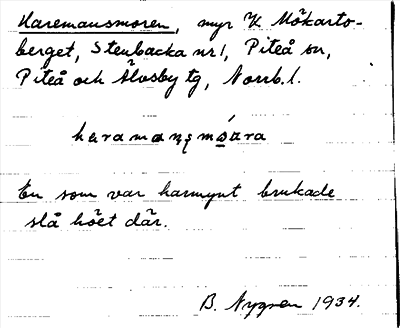 Haremansmoren, myr V. Mökarto-
berget, Stenbacka nr 1, Piteå sn,
Piteå och Älvsby tg, Norrb. l.
haramanșmóara
En som var harmynt brukade
slå höet där.
B. Nygren 1934.